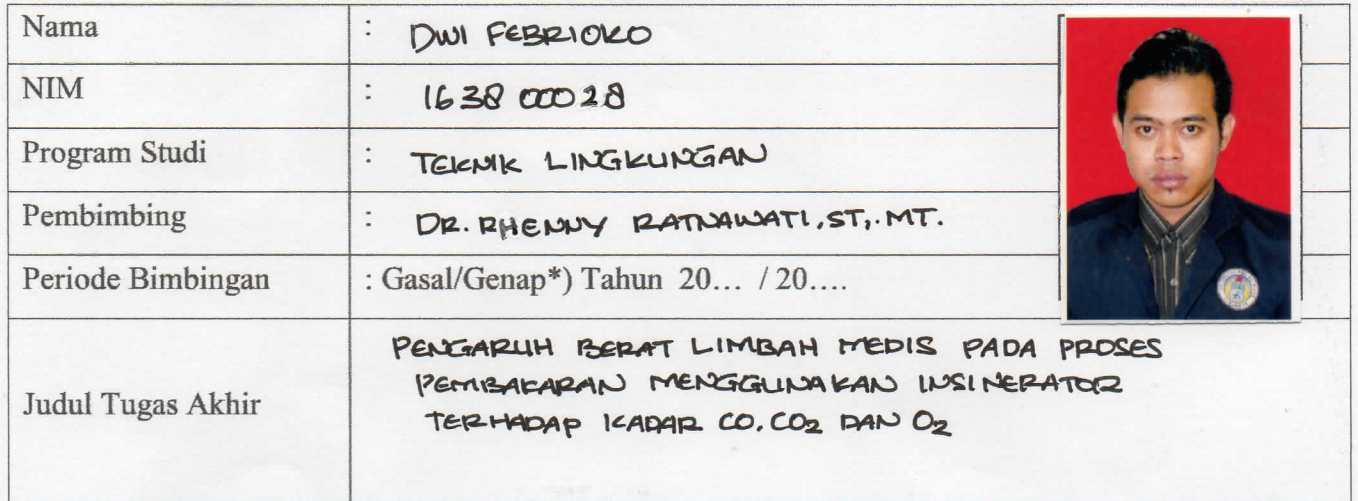 Nama : DWI FEBRIOKO
NIM : 1638 00028
Program Studi : TEKNIK LINGKUNGAN
Pembimbing : DR. RHENNY RATNAWATI, ST,. MT.
Periode Bimbingan : Gasal/Genap*) Tahun 20... / 20....
Judul Tugas Akhir
PENGARUH BERAT LIMBAH MEDIS PADA PROSES
PEMBAKARAN MENGGUNAKAN INSINERATOR
TERHADAP KADAR CO, CO2 DAN O2